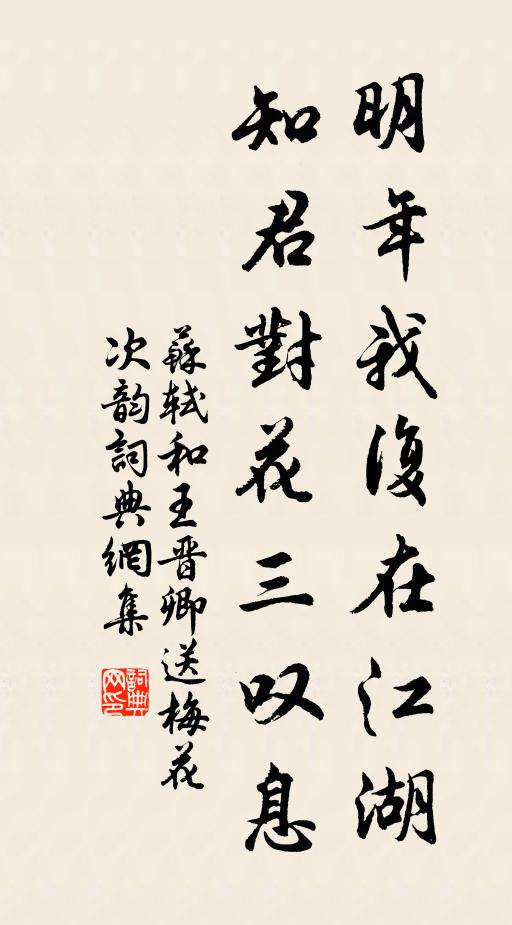 明年我復在江湖
知君對花三叹息
蘇轼和王晋卿送梅花
次韵詞典網集
詞典网印